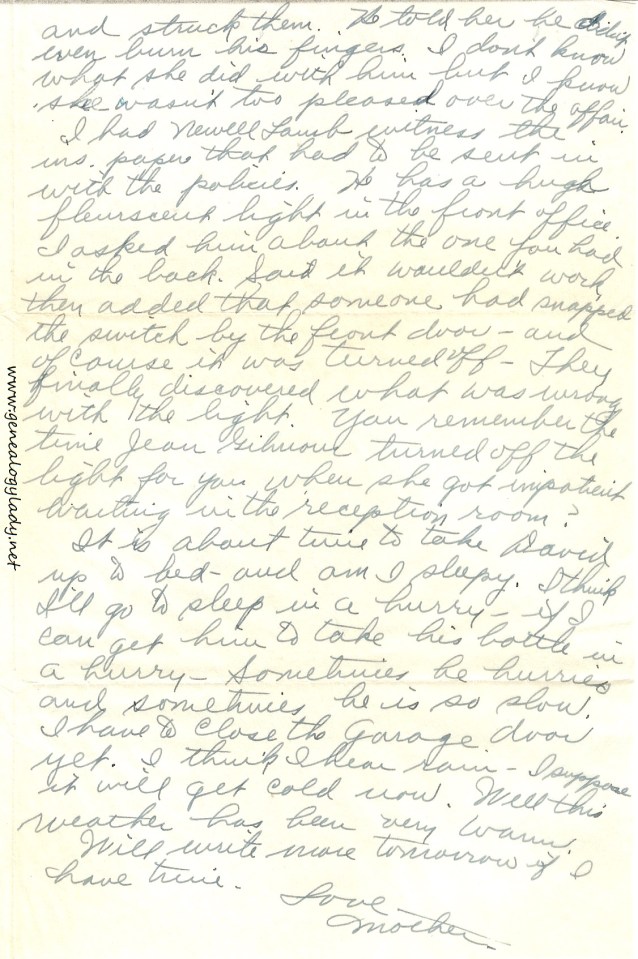 and struck them. He told her he didn't
even burn his fingers. I dont know
what she did with him but I know
she wasn't too pleased over the affair.
I had Newell Lamb witness the
ins. papers that had to be sent in
with the policies. He has a hugh
fleurscent light in the front office
I asked him about the one you had
in the back. Said it wouldn't work
then added that someone had snapped
the switch by the front door – and
of course it was turned off – They
finally discovered what was wrong
with the light. You remember the
time Jean Gilmour turned off the
light for you when she got impatient
waiting in the reception room?
It is about time to take David
up to bed – and am I sleepy. I think
I'll go to sleep in a hurry – if I
can get him to take his bottle in
a hurry – Sometimes he hurries
and sometimes he is so slow.
I have to close the Garage door
yet. I think I hear rain – I suppose
it will get cold now. Well this
weather has been very warm.
Will write more tomorrow if I
have time.
Love
Mother –
www.genealogylady.net